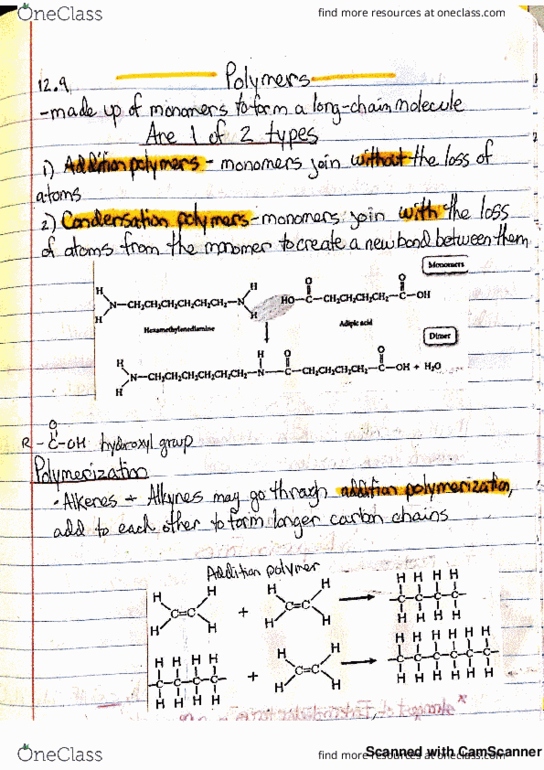 OneClass
find more resources at oneclass.com
12.9 Polymers
-made up of monomers to form a long-chain molecule
Are 1 of 2 types
1) Addition polymers - monomers join without the loss of
atoms
2) Condensation polymers - monomers join with the loss
of atoms from the monomer to create a new bond between them
Monomers
H H O O
N-CH₂CH₂CH₂CH₂CH₂CH₂-N HO-C-CH₂CH₂CH₂CH₂-C-OH
H H
Hexamethylenediamine Adipic acid
Dimer
H H O O
N-CH₂CH₂CH₂CH₂CH₂CH₂-N-C-CH₂CH₂CH₂CH₂-C-OH + H₂O
H
O
R-C-OH hydroxyl group
Polymerization
• Alkenes + Alkynes may go through addition polymerization,
add to each other to form longer carbon chains
Addition polymer
H H H H H H H H
C=C + C=C -C-C-C-C-
H H H H H H H H
H H H H H H H H H H H H
-C-C-C-C- + C=C -C-C-C-C-C-C-
H H H H H H H H H H H H
OneClass
find more resources at oneclass.com
Scanned with CamScanner